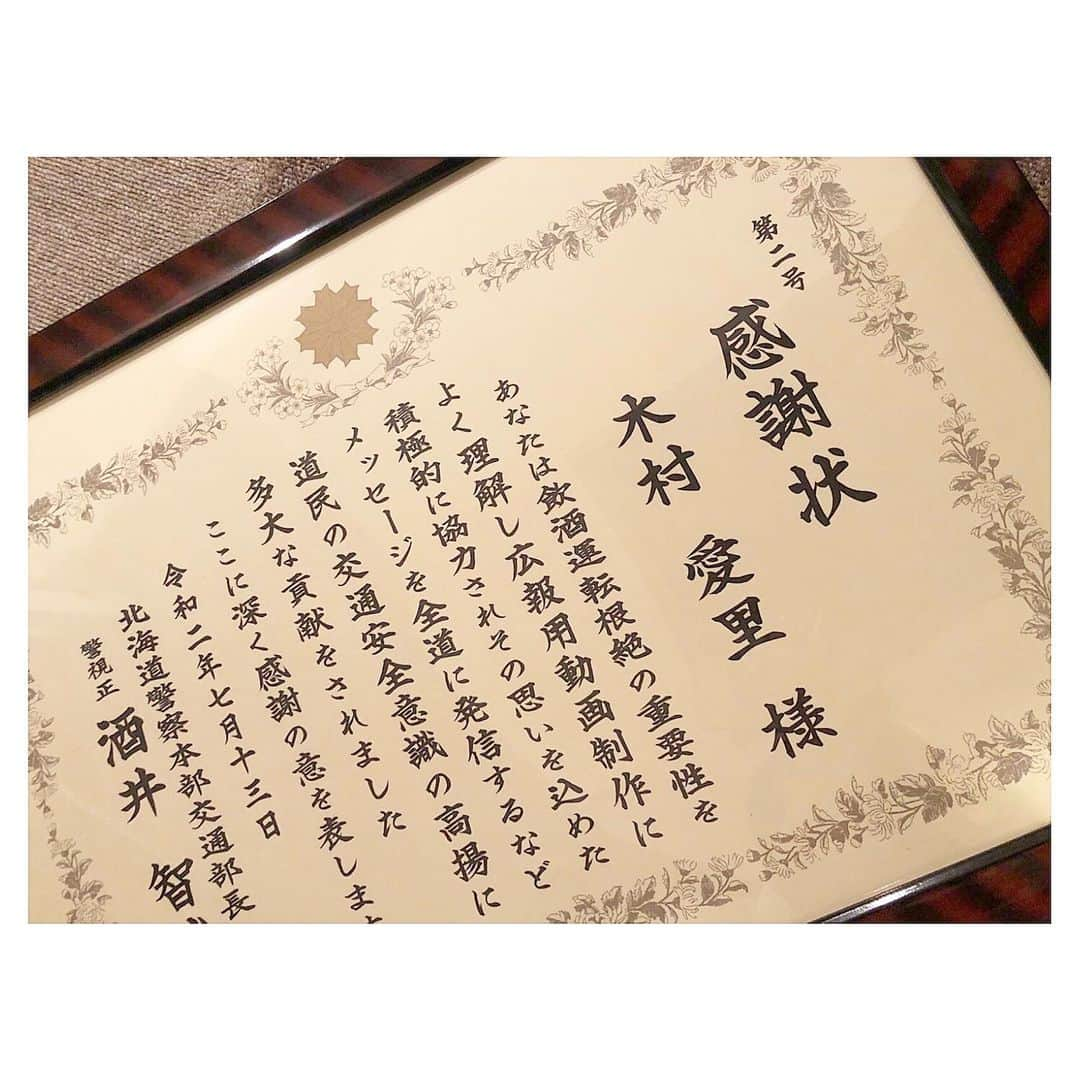 第二号
感謝状
木村 愛里 様
あなたは飲酒運転根絶の重要性を
よく理解し広報用動画制作に
積極的に協力されその思いを込めた
メッセージを全道に発信するなど
道民の交通安全意識の高揚に
多大な貢献をされました
ここに深く感謝の意を表します
令和二年七月十三日
北海道警察本部交通部長
警視正 酒井 智